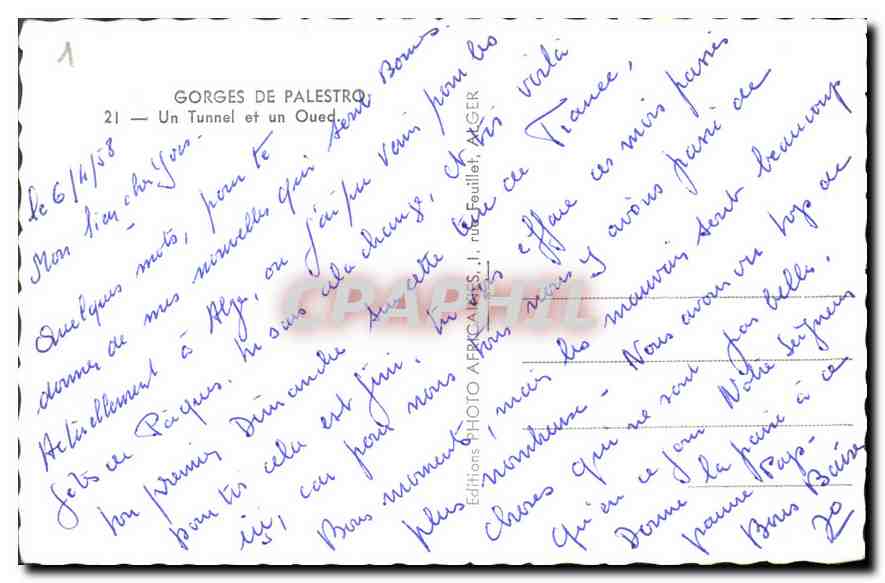 1
GORGES DE PALESTRO
21 — Un Tunnel et un Oued.
Editions PHOTO AFRICAINES, 1, rue Feuillet, ALGER
CPARPHIL
le 6/4/58
Mon bien cher
Quelques mots, pour te
donner de mes nouvelles qui sont Bonnes.
Actuellement à Alger, ou j'ai pu venir pour les
fêtes de Pâques. Tu sais cela change, et toi voilà
ton premier Dimanche sur cette terre de France,
pour toi cela est fini, tu as effacé ces mois passés
ici, car pour nous tous nous y avons passé de
Bons moments, mais les mauvais sont beaucoup
plus nombreuse - Nous avons vu trop de
choses qui ne sont pas belles.
Qu'en ce jour Notre Seigneur
Donne la paix à ce
pauvre Pays -
Bons Baisers
Jo